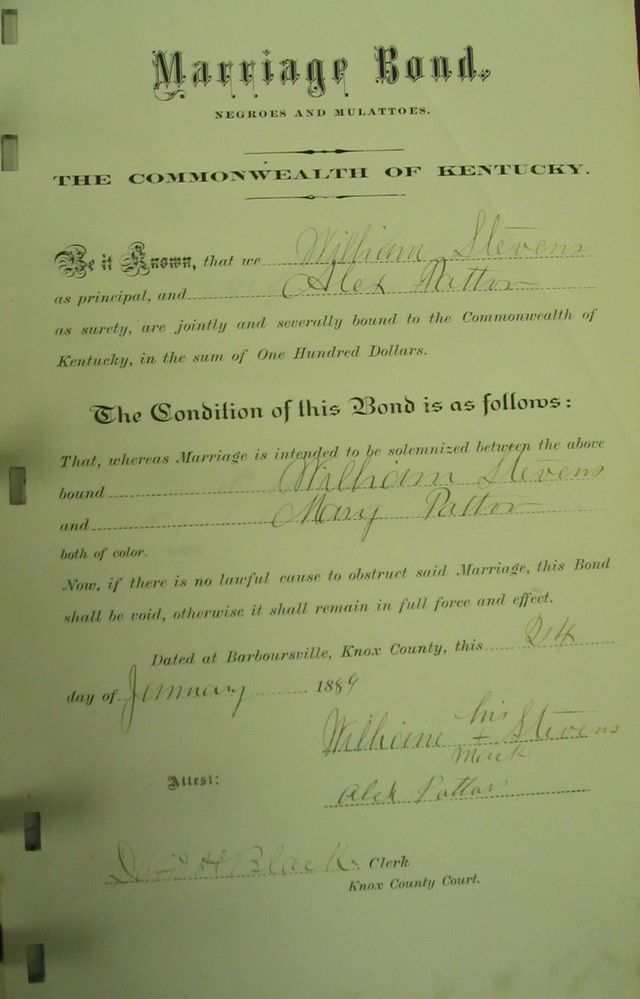 Marriage Bond.
NEGROES AND MULATTOES.
THE COMMONWEALTH OF KENTUCKY.
Be it Known, that we William Stevens
as principal, and Alex Patton
as surety, are jointly and severally bound to the Commonwealth of
Kentucky, in the sum of One Hundred Dollars.
The Condition of this Bond is as follows:
That, whereas Marriage is intended to be solemnized between the above
bound William Stevens
and Mary Patton
both of color.
Now, if there is no lawful cause to obstruct said Marriage, this Bond
shall be void, otherwise it shall remain in full force and effect.
Dated at Barboursville, Knox County, this 24
day of January 1889
his
William + Stevens
mark
Attest:
Alex Patton
H Black Clerk
Knox County Court.